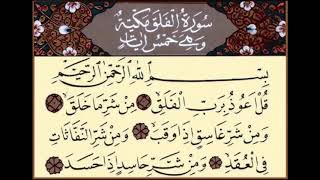 سُورَةُ الْفَلَقِ مَكِّيَّةٌ
وَهِيَ خَمْسُ آيَاتٍ
بِسْمِ اللَّهِ الرَّحْمَنِ الرَّحِيمِ
قُلْ أَعُوذُ بِرَبِّ الْفَلَقِ مِنْ شَرِّ مَا خَلَقَ
وَمِنْ شَرِّ غَاسِقٍ إِذَا وَقَبَ وَمِنْ شَرِّ النَّفَّاثَاتِ
فِي الْعُقَدِ وَمِنْ شَرِّ حَاسِدٍ إِذَا حَسَدَ